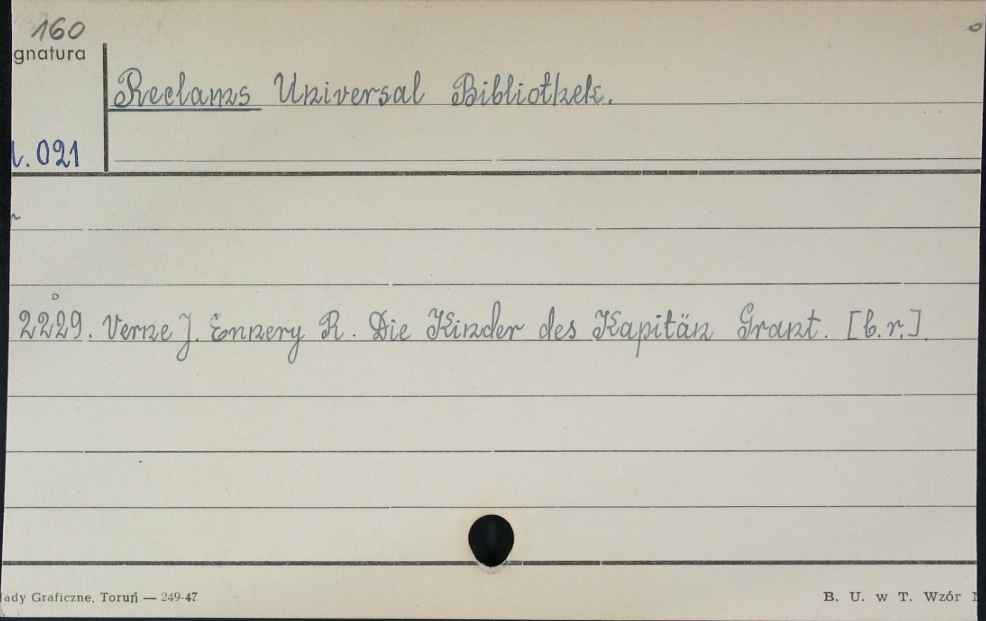 160
gnatura
Reclams Universal Bibliothek.
021
2229. Verne J. Ennery R. Die Kinder des Kapitän Grant. [b.r.].
ady Graficzne, Toruń — 249-47
B. U. w T. Wzór